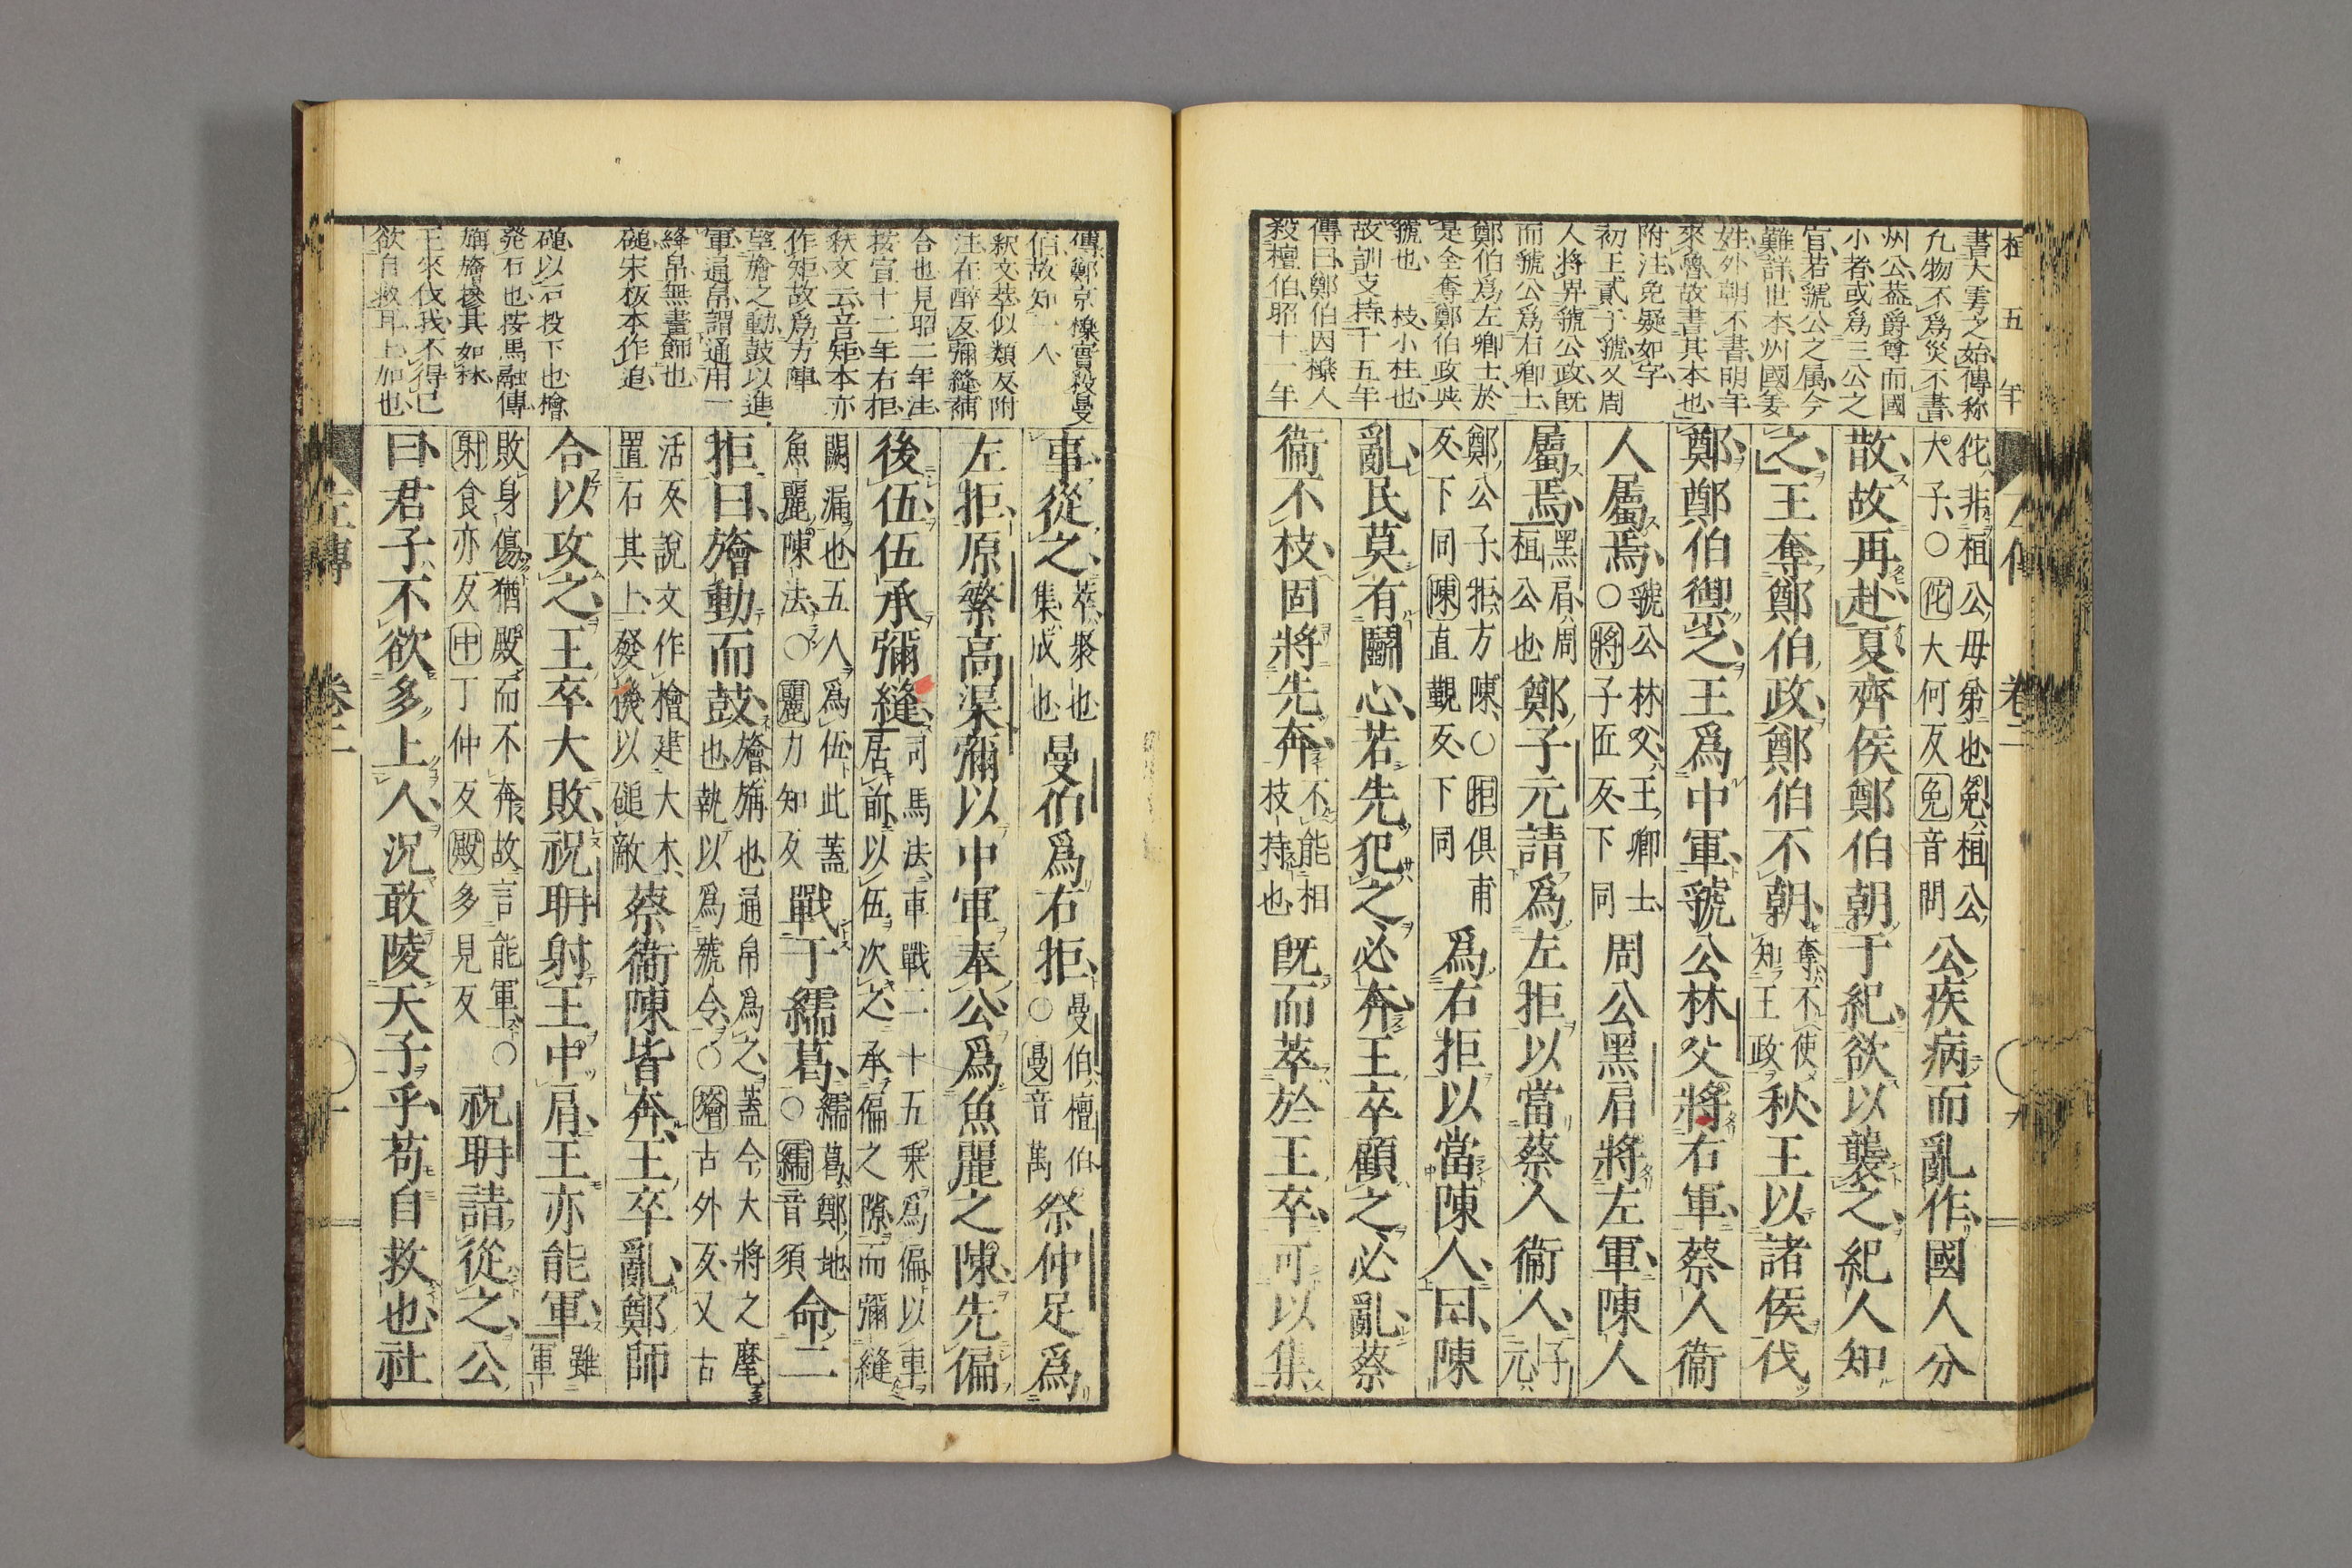 桓 五 年
書大雩之始傳称
凢物不爲災不書
州公蓋爵尊而國
小者或爲三公之
官若虢公之属今
難詳世本州國姜
姓外朝不書明年
來魯故書其本也
附注免疑如字
初王貳于虢又周
人將畀虢公政既
而虢公爲右卿士
鄭伯爲左卿士於
是全奪鄭伯政與
虢也 枝小柱也
故訓支持 十五年
傳曰鄭伯因櫟人
殺檀伯昭十一年
佗非桓公母弟也免桓公
大子○佗大何反免音問
公疾病而亂作國人分
散故再赴夏齊侯鄭伯朝于紀欲以襲之紀人知
之王奪鄭伯政鄭伯不朝
奪不使
知王政
秋王以諸侯伐
鄭鄭伯禦之王爲中軍虢公林父將右軍蔡人衞
人屬焉
虢公林父王卿士
○將子匠反下同
周公黑肩將左軍陳人
屬焉
黑肩周
桓公也
鄭子元請爲左拒以當蔡人衞人
子
元
鄭公子拒方陳○拒俱甫
反下同陳直覲反下同
爲右拒以當陳人曰陳
亂民莫有鬭心若先犯之必奔王卒顧之必亂蔡
衞不枝固將先奔
不能相
枝持也
既而萃於王卒可以集
左傳 卷二 九
傳鄭京櫟實殺曼
伯故知一人
釈文萃似類反附
注在醉反彌縫補
合也見昭二年注
按宣十二年右拒
釈文云音矩本亦
作矩故爲方陣
望旝之動鼓以進
軍通帛謂通用一
絳帛無畫飾也
磓宋板本作追
磓以石投下也檜
発石也按馬融傳
旃旝摻其如林
王來伐我不得已
欲自救耳上加也
事從之
萃聚也
集成也
曼伯爲右拒
曼伯檀伯
○曼音萬
祭仲足爲
左拒原繁高渠彌以中軍奉公爲魚麗之陳先偏
後伍伍承彌縫
司馬法車戰二十五乘爲偏以車
居前以伍次之承偏之隙而彌縫
闕漏也五人爲伍此蓋
魚麗陳法○麗力知反
戰于繻葛
繻葛鄭地
○繻音須
命二
拒曰旝動而鼓
旝旃也通帛爲之蓋今大將之麾
也執以爲號令○旝古外反又古
活反說文作檜建大木
置石其上發機以磓敵
蔡衞陳皆奔王卒亂鄭師
合以攻之王卒大敗祝聃射王中肩王亦能軍
雖
軍
敗身傷猶殿而不奔故言能軍○
射食亦反中丁仲反殿多見反
祝聃請從之公
曰君子不欲多上人況敢陵天子乎苟自救也社
左傳 卷二 十